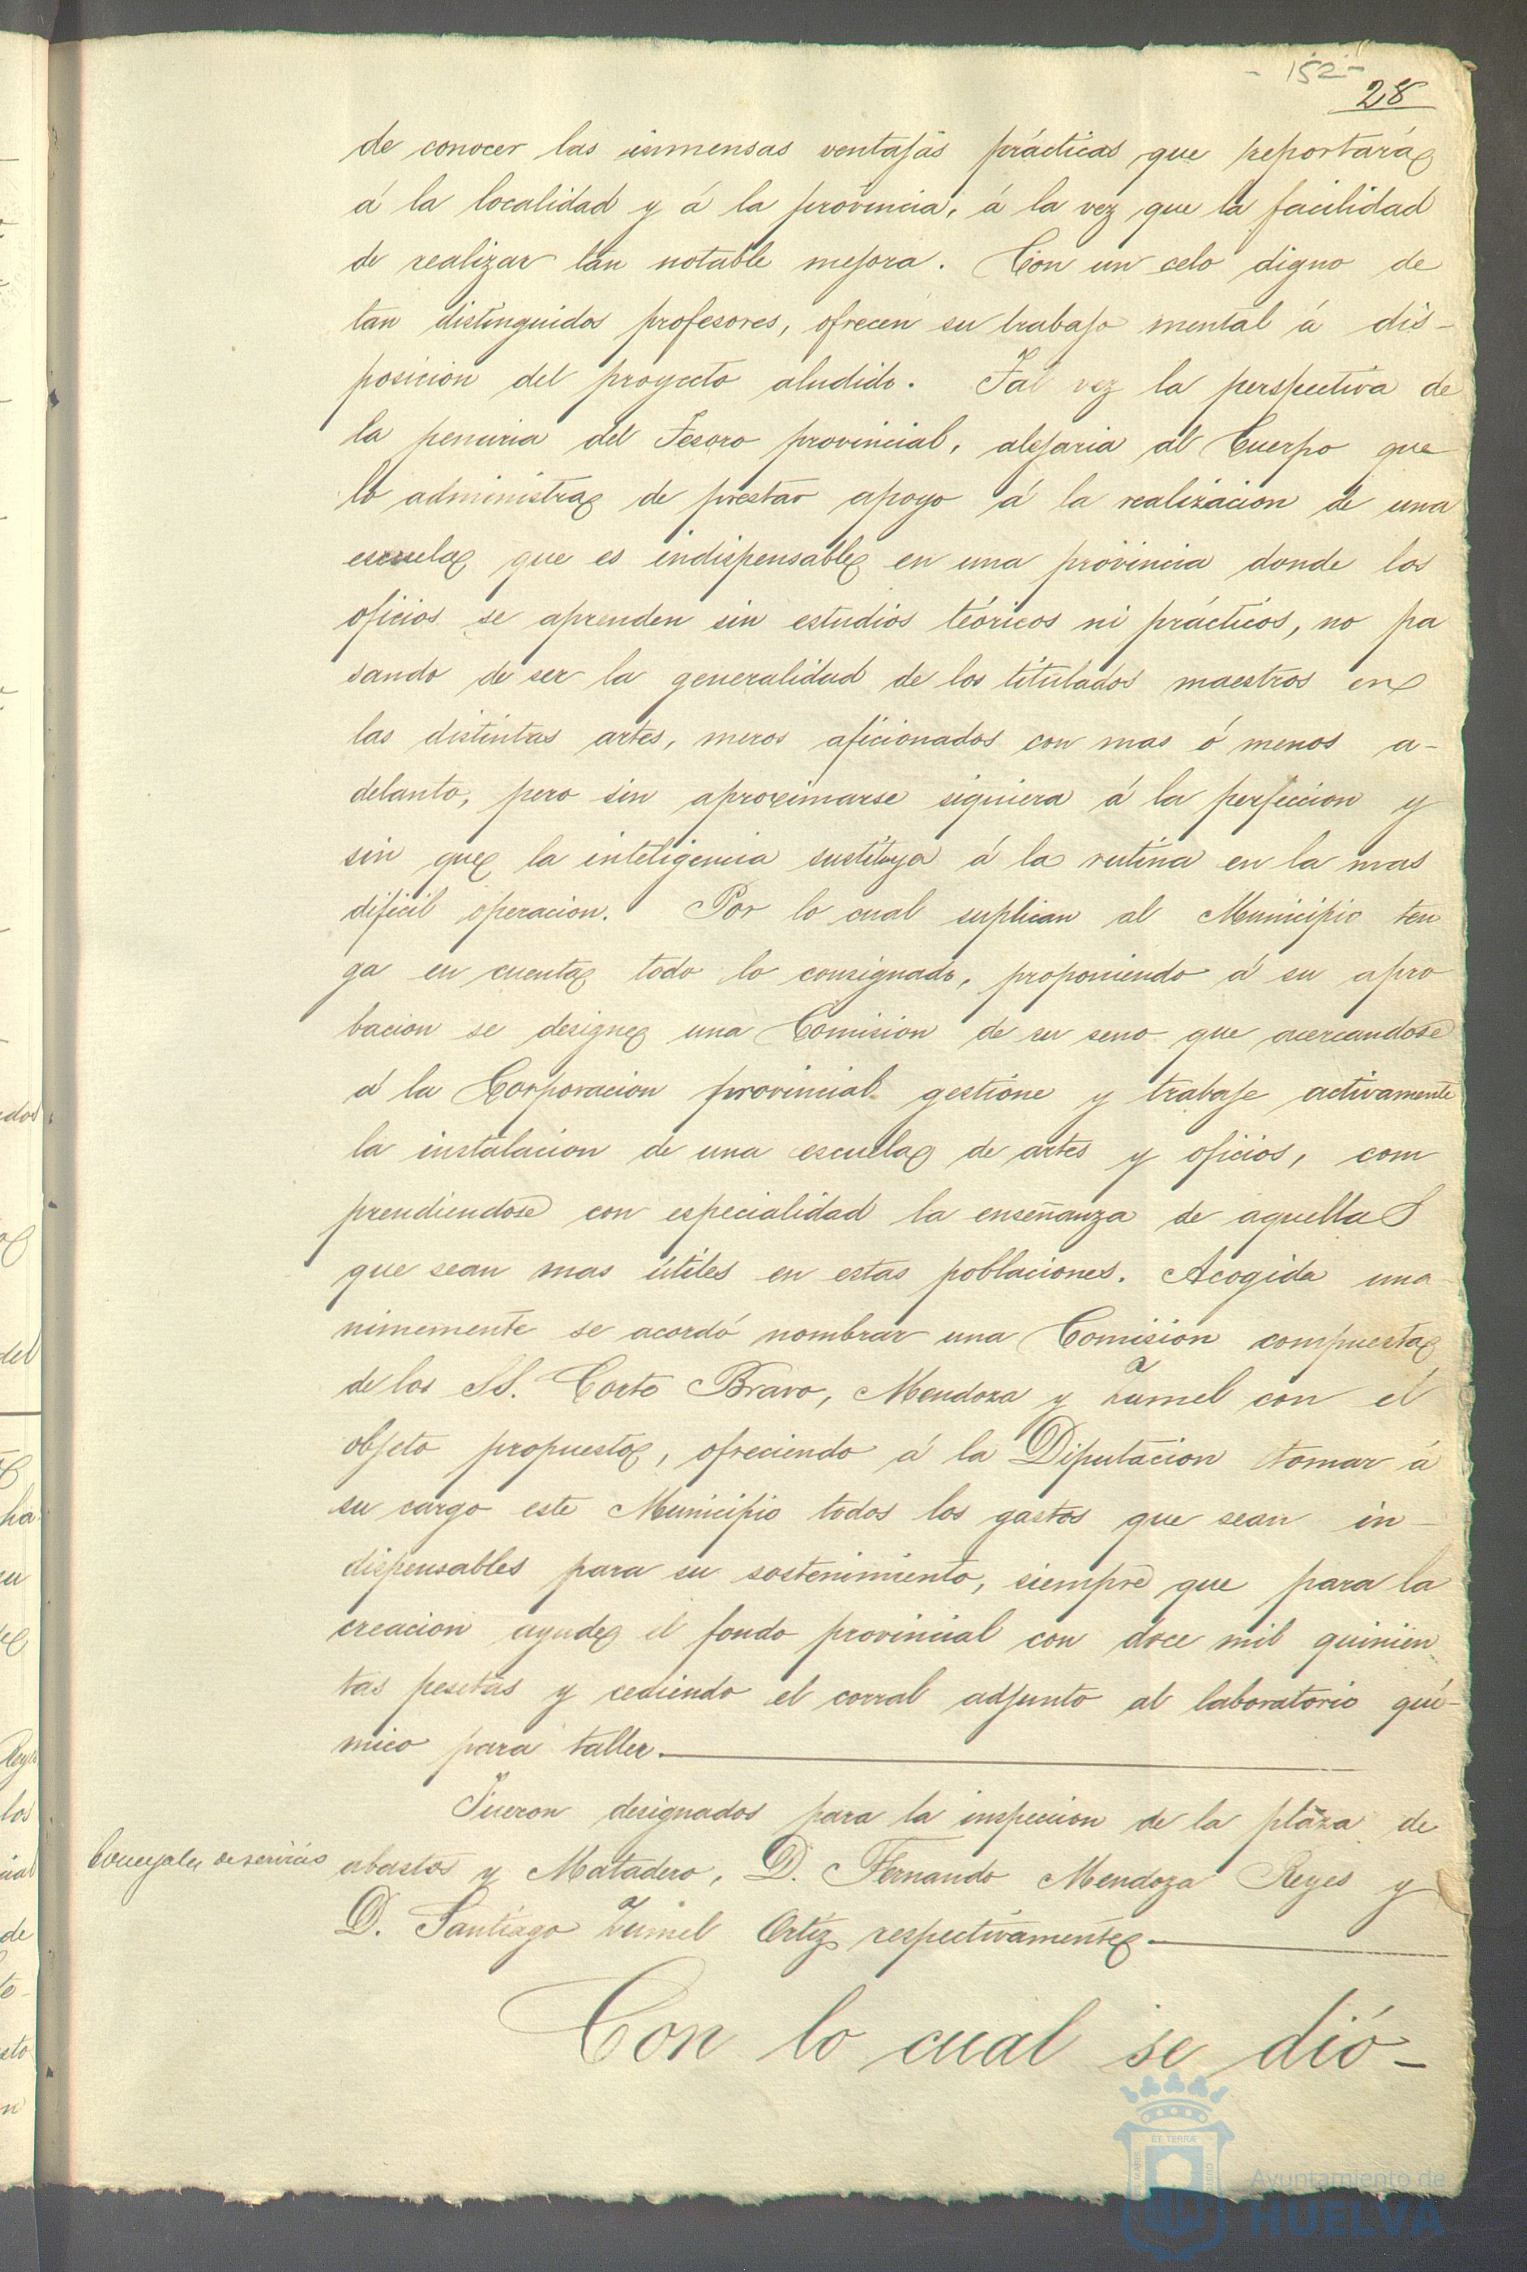 - 152 -
28
de conocer las inmensas ventajas prácticas que reportará
á la localidad y á la provincia, á la vez que la facilidad
de realizar tan notable mejora. Con un celo digno de
tan distinguidos profesores, ofrecen su trabajo mental á dis-
posicion del proyecto aludido. Tal vez la perspectiva de
la penuria del Tesoro provincial, alejaria al Cuerpo que
lo administra de prestar apoyo á la realizacion de una
escuela que es indispensable en una provincia donde los
oficios se aprenden sin estudios teóricos ni prácticos, no pa
sando de ser la generalidad de los titulados maestros en
las distintas artes, meros aficionados con mas ó menos a-
delanto, pero sin aproximarse siquiera á la perfeccion y
sin que la inteligencia sustituya á la rutina en la mas
dificil operacion. Por lo cual suplican al Municipio ten
ga en cuenta todo lo consignado, proponiendo á su apro
bacion se designe una Comision de su seno que acercandose
á la Corporacion provincial gestione y trabaje activamente
la instalacion de una escuela de artes y oficios, com
prendiendose con especialidad la enseñanza de aquellas
que sean mas útiles en estas poblaciones. Acogida una
nimemente se acordó nombrar una Comision compuesta
de los SS. Corto Bravo, Mendoza y Zumel con el
objeto propuesto, ofreciendo á la Diputacion tomar á
su cargo este Municipio todos los gastos que sean in-
dispensables para su sostenimiento, siempre que para la
creacion ayude el fondo provincial con doce mil quinien
tas pesetas y cediendo el corral adjunto al laboratorio quí-
mico para taller.
Fueron designados para la inspeccion de la plaza de
Concejales de servicio
abastos y Matadero, D. Fernando Mendoza Reyes y
D. Santiago Zumel Ortiz respectivamente.
Con lo cual se dió-
Ayuntamiento de
HUELVA